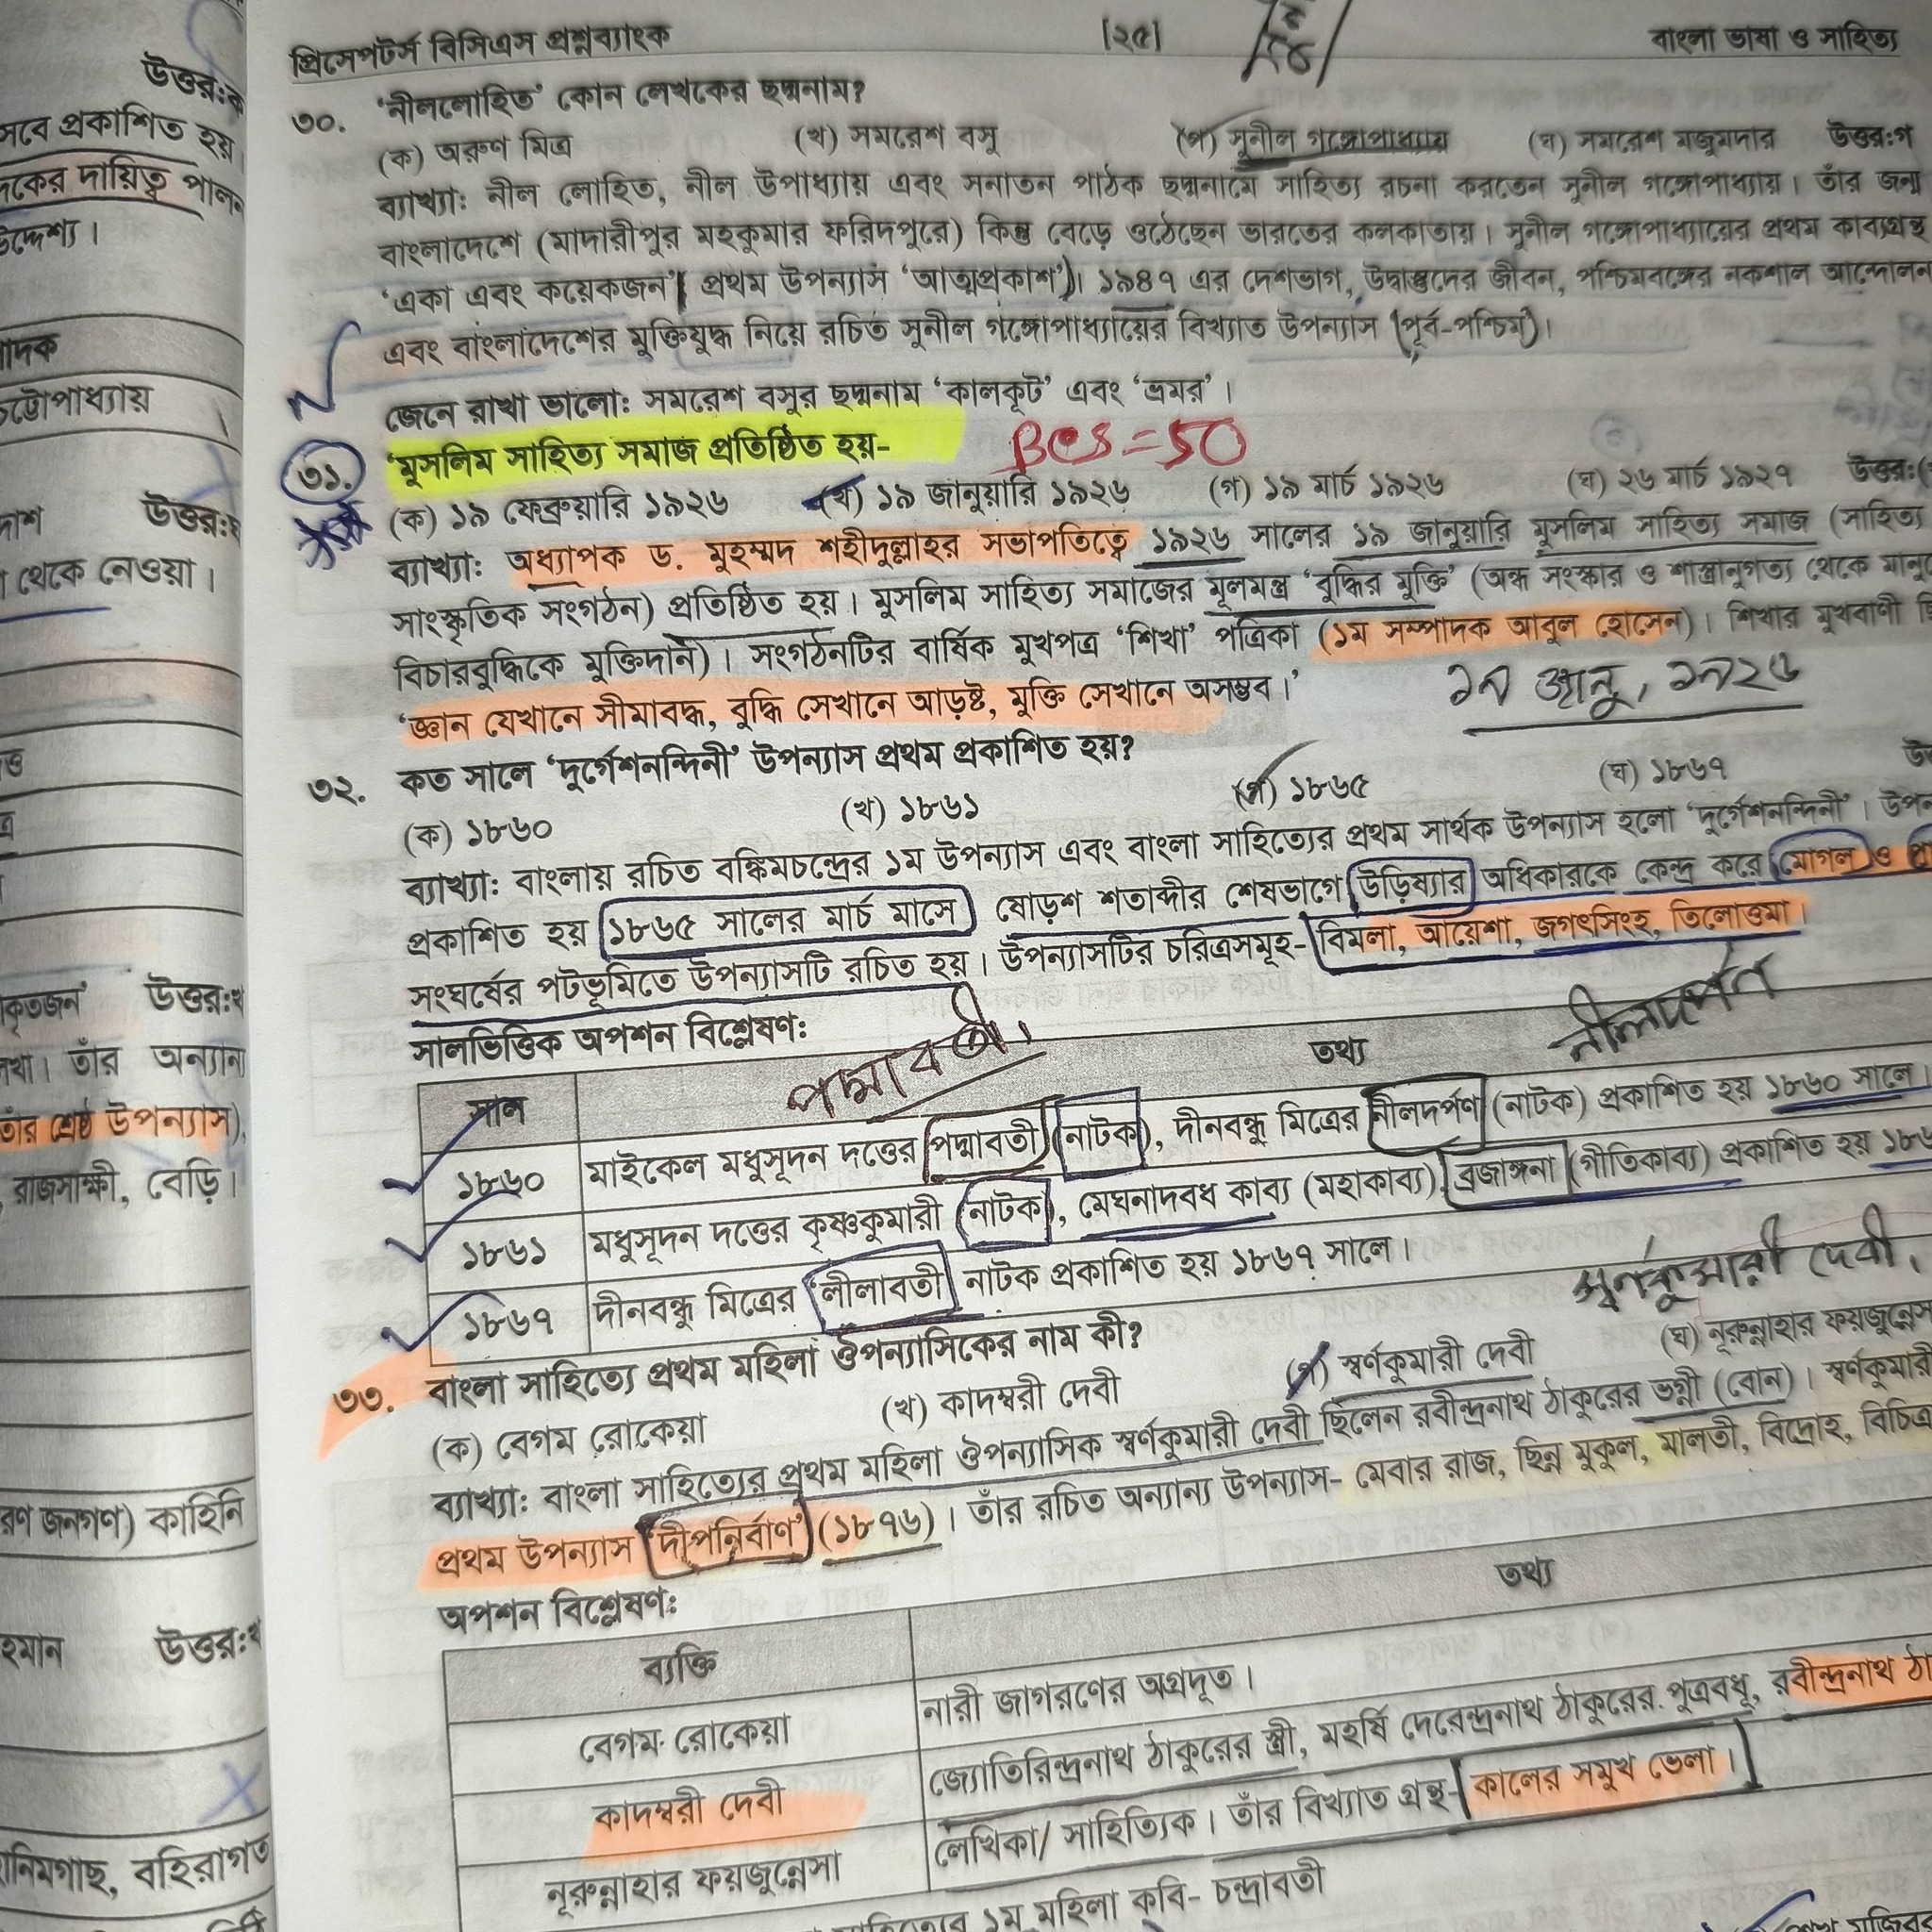 প্রিসেপটর্স বিসিএস প্রশ্নব্যাংক |২৫| বাংলা ভাষা ও সাহিত্য
৩০. ‘নীললোহিত’ কোন লেখকের ছদ্মনাম?
(ক) অরুণ মিত্র (খ) সমরেশ বসু (গ) সুনীল গঙ্গোপাধ্যায় (ঘ) সমরেশ মজুমদার উত্তর:গ
ব্যাখ্যা: নীল লোহিত, নীল উপাধ্যায় এবং সনাতন পাঠক ছদ্মনামে সাহিত্য রচনা করতেন সুনীল গঙ্গোপাধ্যায়। তাঁর জন্ম
বাংলাদেশে (মাদারীপুর মহকুমার ফরিদপুরে) কিন্তু বেড়ে ওঠেছেন ভারতের কলকাতায়। সুনীল গঙ্গোপাধ্যায়ের প্রথম কাব্যগ্রন্থ
‘একা এবং কয়েকজন’। প্রথম উপন্যাস ‘আত্মপ্রকাশ’। ১৯৪৭ এর দেশভাগ, উদ্বাস্তুদের জীবন, পশ্চিমবঙ্গের নকশাল আন্দোলন
এবং বাংলাদেশের মুক্তিযুদ্ধ নিয়ে রচিত সুনীল গঙ্গোপাধ্যায়ের বিখ্যাত উপন্যাস ‘পূর্ব-পশ্চিম’।
জেনে রাখা ভালো: সমরেশ বসুর ছদ্মনাম ‘কালকূট’ এবং ‘ভ্রমর’।
৩১. ‘মুসলিম সাহিত্য সমাজ প্রতিষ্ঠিত হয়- BCS = 50
(ক) ১৯ ফেব্রুয়ারি ১৯২৬ (খ) ১৯ জানুয়ারি ১৯২৬ (গ) ১৯ মার্চ ১৯২৬ (ঘ) ২৬ মার্চ ১৯২৭ উত্তর:
ব্যাখ্যা: অধ্যাপক ড. মুহম্মদ শহীদুল্লাহর সভাপতিত্বে ১৯২৬ সালের ১৯ জানুয়ারি মুসলিম সাহিত্য সমাজ (সাহিত্য
সাংস্কৃতিক সংগঠন) প্রতিষ্ঠিত হয়। মুসলিম সাহিত্য সমাজের মূলমন্ত্র ‘বুদ্ধির মুক্তি’ (অন্ধ সংস্কার ও শাস্ত্রানুগত্য থেকে
বিচারবুদ্ধিকে মুক্তিদান)। সংগঠনটির বার্ষিক মুখপত্র ‘শিখা’ পত্রিকা (১ম সম্পাদক আবুল হোসেন)। শিখার মুখবাণী
‘জ্ঞান যেখানে সীমাবদ্ধ, বুদ্ধি সেখানে আড়ষ্ট, মুক্তি সেখানে অসম্ভব।’ ১৯ জানু, ১৯২৬
৩২. কত সালে ‘দুর্গেশনন্দিনী’ উপন্যাস প্রথম প্রকাশিত হয়?
(ক) ১৮৬০ (খ) ১৮৬১ (গ) ১৮৬৫ (ঘ) ১৮৬৭
ব্যাখ্যা: বাংলায় রচিত বঙ্কিমচন্দ্রের ১ম উপন্যাস এবং বাংলা সাহিত্যের প্রথম সার্থক উপন্যাস হলো ‘দুর্গেশনন্দিনী’।
প্রকাশিত হয় ১৮৬৫ সালের মার্চ মাসে ষোড়শ শতাব্দীর শেষভাগে উড়িষ্যার অধিকারকে কেন্দ্র করে মোগল ও
সংঘর্ষের পটভূমিতে উপন্যাসটি রচিত হয়। উপন্যাসটির চরিত্রসমূহ- বিমলা, আয়েশা, জগৎসিংহ, তিলোত্তমা।
সালভিত্তিক অপশন বিশ্লেষণ: পদ্মাবতী। নীলদর্পন
সাল তথ্য
১৮৬০ মাইকেল মধুসূদন দত্তের পদ্মাবতী (নাটক), দীনবন্ধু মিত্রের নীলদর্পণ (নাটক) প্রকাশিত হয় ১৮৬০ সালে।
১৮৬১ মধুসূদন দত্তের কৃষ্ণকুমারী (নাটক), মেঘনাদবধ কাব্য (মহাকাব্য), ব্রজাঙ্গনা (গীতিকাব্য) প্রকাশিত হয়
১৮৬৭ দীনবন্ধু মিত্রের ‘লীলাবতী’ নাটক প্রকাশিত হয় ১৮৬৭ সালে।
স্বর্ণকুমারী দেবী,
৩৩. বাংলা সাহিত্যে প্রথম মহিলা ঔপন্যাসিকের নাম কী?
(ক) বেগম রোকেয়া (খ) কাদম্বরী দেবী (গ) স্বর্ণকুমারী দেবী (ঘ) নূরুন্নাহার ফয়জুন্নেস
ব্যাখ্যা: বাংলা সাহিত্যের প্রথম মহিলা ঔপন্যাসিক স্বর্ণকুমারী দেবী ছিলেন রবীন্দ্রনাথ ঠাকুরের ভগ্নী (বোন)। স্বর্ণকুমারী
প্রথম উপন্যাস ‘দীপনির্বাণ’ (১৮৭৬)। তাঁর রচিত অন্যান্য উপন্যাস- মেবার রাজ, ছিন্ন মুকুল, মালতী, বিদ্রোহ, বিচিত্র
অপশন বিশ্লেষণ:
ব্যক্তি তথ্য
বেগম রোকেয়া নারী জাগরণের অগ্রদূত।
কাদম্বরী দেবী জ্যোতিরিন্দ্রনাথ ঠাকুরের স্ত্রী, মহর্ষি দেবেন্দ্রনাথ ঠাকুরের পুত্রবধূ, রবীন্দ্রনাথ
নূরুন্নাহার ফয়জুন্নেসা লেখিকা/ সাহিত্যিক। তাঁর বিখ্যাত গ্রন্থ- কালের সমুখ ভেলা।
১ম মহিলা কবি- চন্দ্রাবতী
উত্তর:ক
সবে প্রকাশিত হয়
দায়িত্ব পালন
উদ্দেশ্য।
চট্টোপাধ্যায়
উত্তর:ঘ
থেকে নেওয়া।
উত্তর:খ
তাঁর অন্যান্য
তাঁর শ্রেষ্ঠ উপন্যাস),
রাজসাক্ষী, বেড়ি।
জনগণ) কাহিনি
উত্তর:খ
বহিরাগত